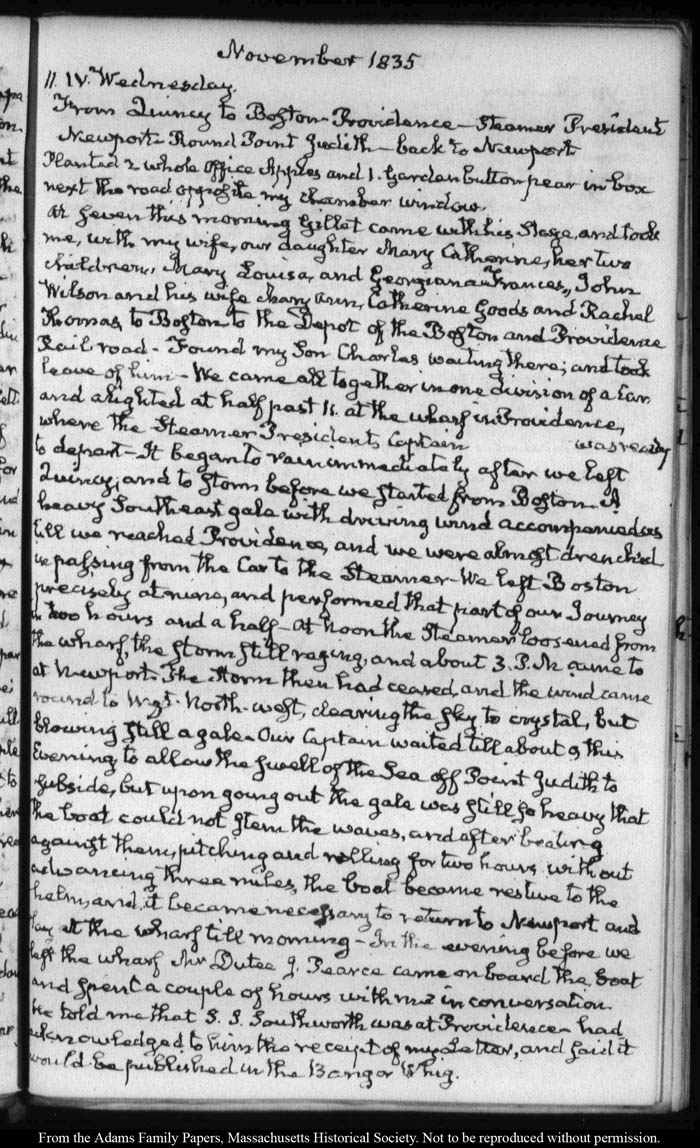 November 1835
11. IV. Wednesday.
From Quincy to Boston- Providence- Steamer President
Newport- Round Point Judith- back to Newport
Planted 2 whole Office Apples and 1. Garden button pear in box
next the road opposite my chamber window.
At Seven this morning Gillet came with his Stage, and took
me, with my wife, our daughter Mary Catherine, her two
children, Mary Louisa, and Georgiana Frances, John
Wilson and his wife Mary Ann, Catherine Goods and Rachel
Thomas, to Boston to the Depot of the Boston and Providence
Rail-road- Found my Son Charles waiting there; and took
leave of him- We came all together in one division of a Car
and alighted at half past 11. at the wharf in Providence,
where the Steamer President, Captain was ready
to depart- It began to rain immediately after we left
Quincy, and to storm before we started from Boston- A
heavy Southeast gale with driving wind accompanied us
till we reached Providence, and we were almost drenched
in passing from the Car to the Steamer- We left Boston
precisely at nine, and performed that part of our Journey
in two hours and a half- At noon the Steamer loosened from
the wharf, the storm still raging, and about 3. P.M. came to
at Newport. The storm then had ceased, and the wind came
round to West-North-west, clearing the sky to crystal, but
blowing still a gale- Our Captain waited till about 9 this
Evening to allow the swell of the Sea off Point Judith to
subside, but upon going out the gale was still so heavy that
the boat could not stem the waves, and after beating
against them, pitching and rolling for two hours without
advancing three miles, the boat became restive to the
helm, and it became necessary to return to Newport and
lay at the wharf till morning- In the evening before we
left the wharf Mr Dutee J. Pearce came on board the boat
and spent a couple of hours with me in conversation.
He told me that S. S. Southworth was at Providence- had
acknowledged to him the receipt of my Letter, and said it
would be published in the Bangor Whig.
From the Adams Family Papers, Massachusetts Historical Society. Not to be reproduced without permission.